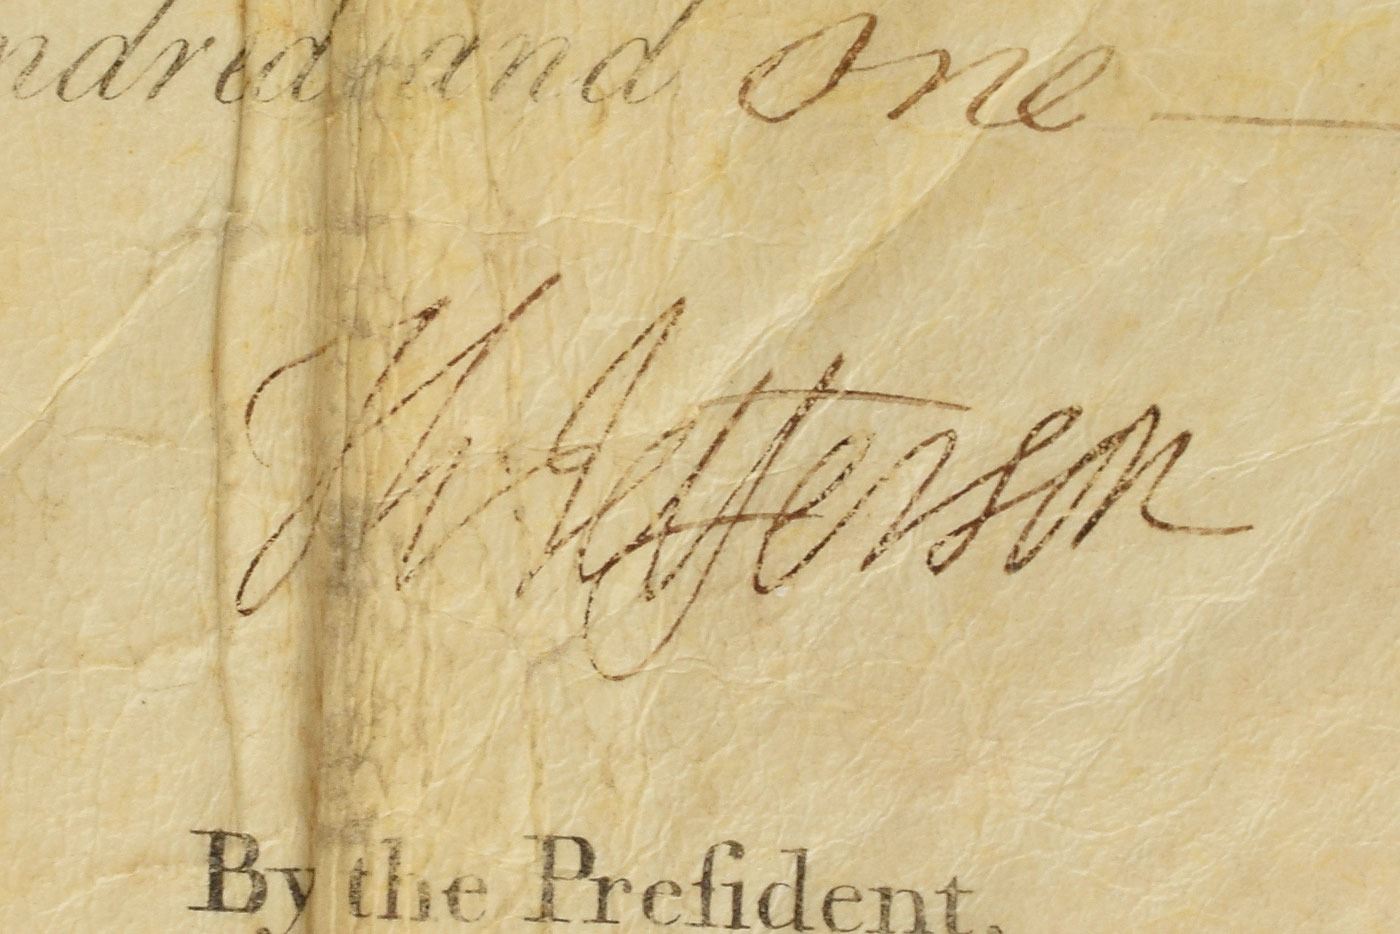 ndred and one
Th Jefferson
By the Preſident,